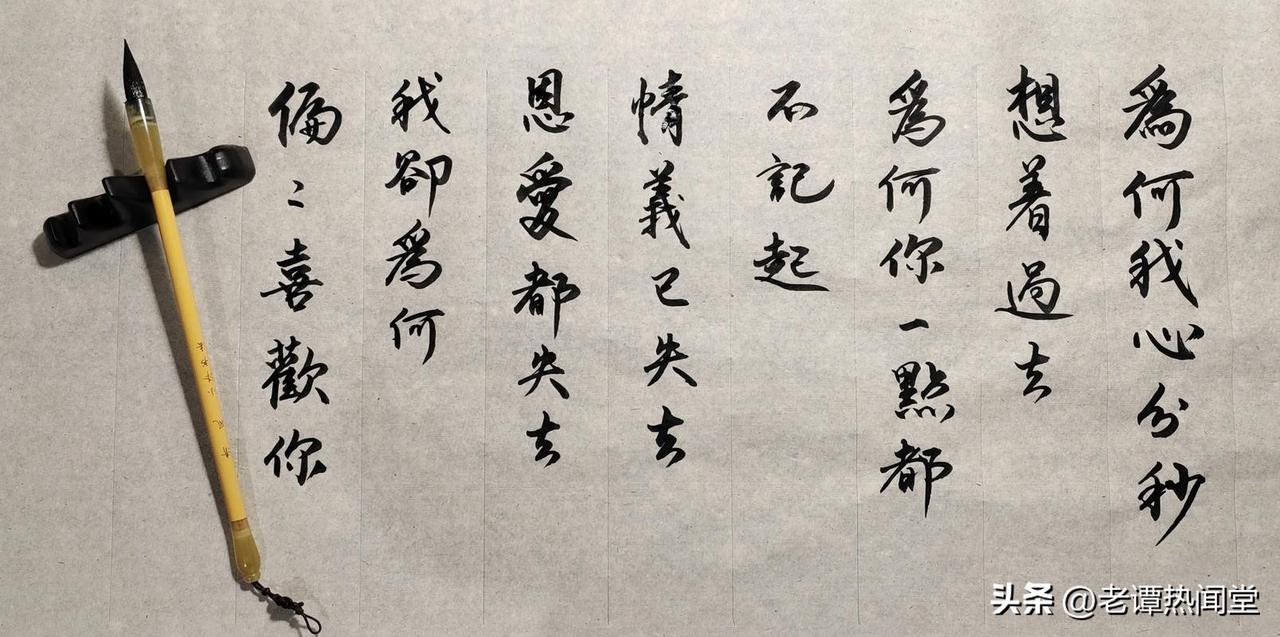 為何我心分秒
想着過去
為何你一點都
不記起
情義已失去
恩愛都失去
我卻為何
偏〻喜歡你
头条 @老谭热闻堂